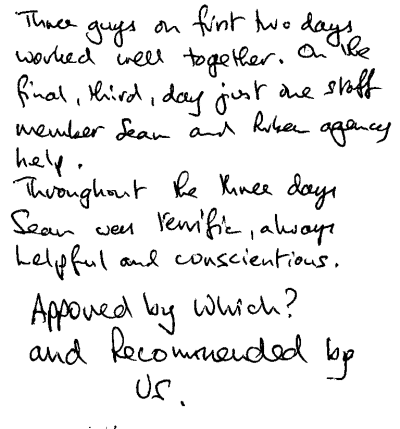 Three guys on first two days
worked well together. On the
final, third, day just one staff
member Sean and  agency
help.
Throughout the three days
Sean was terrific, always
helpful and conscientious.
Appoved by Which?
and Recommended by
US.